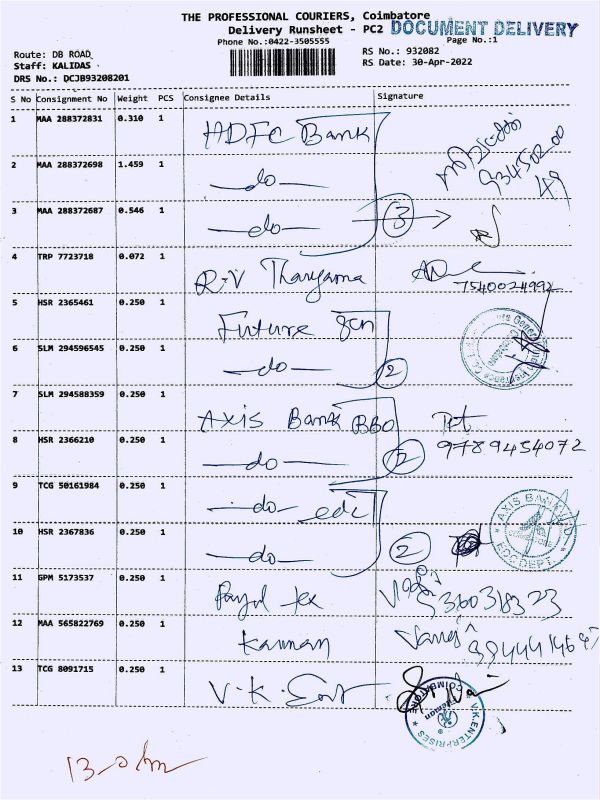 THE PROFESSIONAL COURIERS, Coimbatore
Delivery Runsheet - PC2 DOCUMENT DELIVERY
Phone No.:0422-3505555 Page No.:1
Route: DB ROAD RS No.: 932082
Staff: KALIDAS RS Date: 30-Apr-2022
DRS No.: DCJB93208201
S No Consignment No Weight PCS Consignee Details Signature
1 MAA 288372831 0.310 1 HDFC Bank
2 MAA 288372698 1.459 1 —do—
3 MAA 288372687 0.546 1 —do— 3
4 TRP 7723718 0.072 1 R.V
7540024992
5 HSR 2365461 0.250 1 Future Gen
6 SLM 294596545 0.250 1 —do— 2
7 SLM 294588359 0.250 1 Axis Bank BBO
8 HSR 2366210 0.250 1 —do— 2 9789454072
9 TCG 50161984 0.250 1 —do— edc
AXIS BANK
10 HSR 2367836 0.250 1 —do— 2
DEPT.
11 GPM 5173537 0.250 1
12 MAA 565822769 0.250 1 Kannan
13 TCG 8091715 0.250 1 V.K.
V.K.ENTERPRISES
COIMBATORE